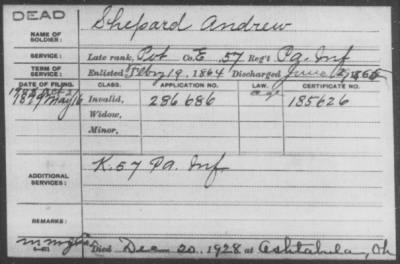 DEAD
Shepard Andrew
NAME OF SOLDIER:
SERVICE: Late rank, Pvt Co. E, 57 Reg't Pa. Inf
TERM OF SERVICE: Enlisted Feby 19, 1864 Discharged June 1865
DATE OF FILING. CLASS. APPLICATION NO. LAW. CERTIFICATE NO.
1879 May 16 Invalid, 286686 185626
Widow,
Minor,
ADDITIONAL SERVICES: K. 57 Pa. Inf
REMARKS:
Died Dec 20, 1928 at Ashtabula, Oh